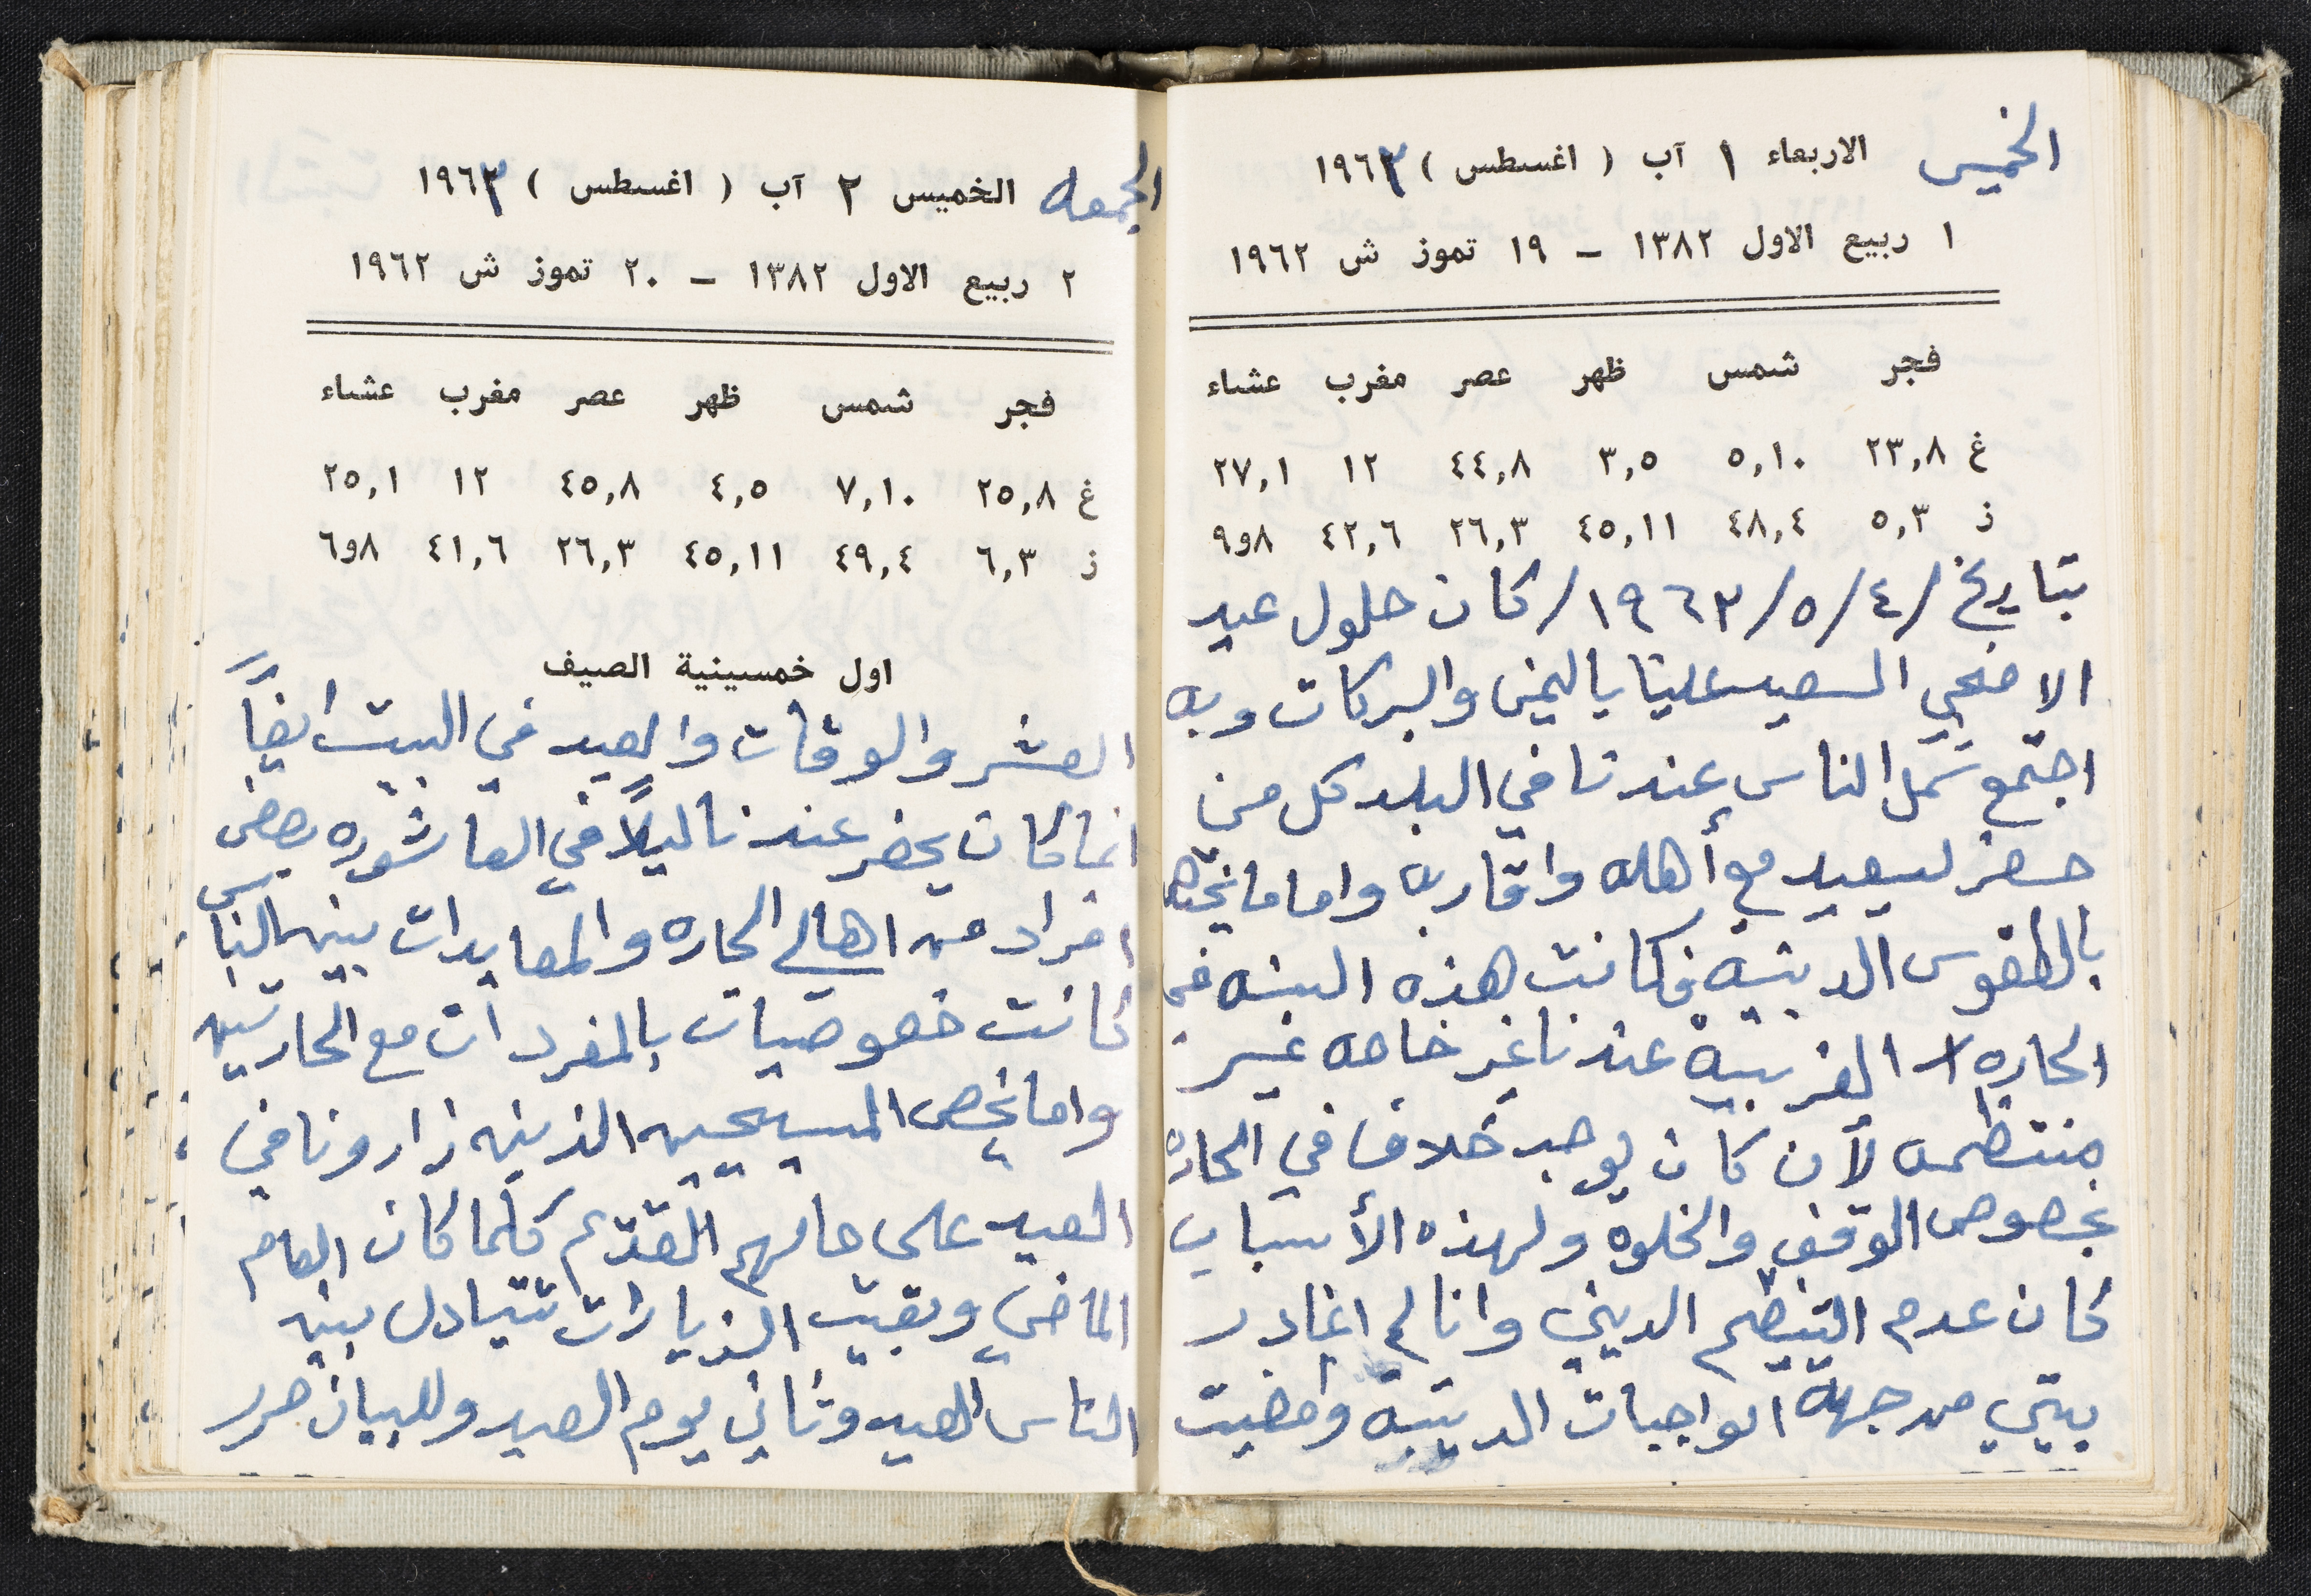 الخميس الاربعاء ١ آب ( اغسطس ) ١٩٦٣
١ ربيع الاول ١٣٨٢ – ١٩ تموز ش ١٩٦٢
فجر شمس ظهر عصر مغرب عشاء
غ ٢٣,٨ ٥,١٠ ٣,٥ ٤٤,٨ ١٢ ٢٧,١
ز ٥,٣ ٤٨,٤ ٤٥,١١ ٢٦,٣ ٤٢,٦ ٨و٩
بتاريخ /٤/٥/١٩٦٣/ كان حلول عيد
الاضحى السعيد علينا باليمن والبركات وبه
اجتمع شمل الناس عندنا في البلد كل من
حضر ليعيد مع أهله واقاربه واما ما يختص
بالطقوس الدينيه فكانت هذه السنه في
الحاره الغربيه عندنا غير خاصه غير
منتظمه لأن كان يوجد خلاف في الحارة
بخصوص الوقف والخلوة ولهذه الأسباب
كان عدم التنظيم الديني وانا لم اغادر
بيتي من جهة الواجبات الدينية وامضيت
الجمعه الخميس ٢ آب ( اغسطس ) ١٩٦٣
٢ ربيع الاول ١٣٨٢ – ٢٠ تموز ش ١٩٦٢
فجر شمس ظهر عصر مغرب عشاء
غ ٢٥,٨ ٧,١٠ ٤,٥ ٤٥,٨ ١٢ ٢٥,١
ز ٦,٣ ٤٩,٤ ٤٥,١١ ٢٦,٣ ٤١,٦ ٨و٦
اول خمسينية الصيف
العشر والوقات والعيد في البيت ايضاً
انما كان يحضر عندنا ليلاً في العاشوره بعض
افراد من اهالي الحاره والمعايدات بين الناس
كانت خصوصيات بالمفردات مع الحارتين
واما يخص المسيحيين الذين زارونا في
العيد على حالهم القديم كلما كان العام
الماضي وبقيت الزيارات تتبادل بين
الناس العيد وثاني يوم العيد وللبيان حرر